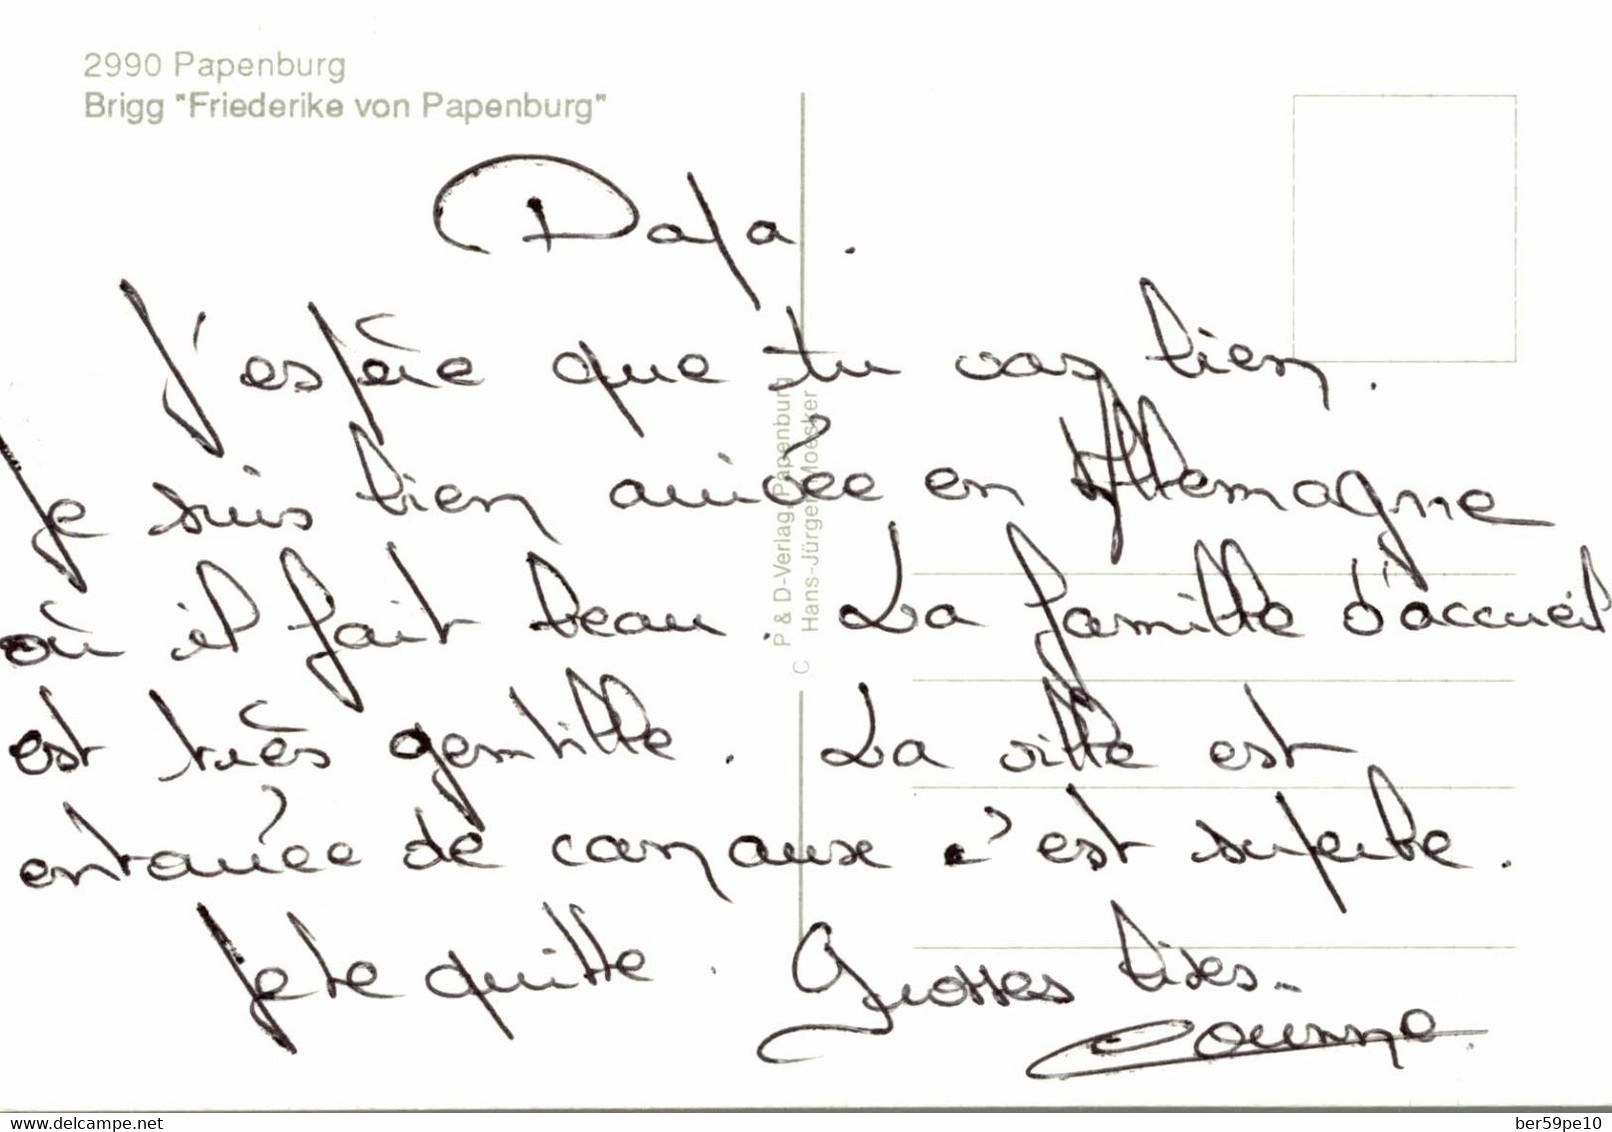 2990 Papenburg
Brigg "Friederike von Papenburg"
Papa.
J'espère que tu vas bien.
Je suis bien arrivée en Allemagne
où il fait beau. La famille d'accueil
est très gentille. La ville est
entourée de canaux c'est superbe.
Je te quitte. Grosses bises.
Corinne.
C P & D-Verlag, Papenburg
Hans-Jürgen Moesker
www.delcampe.net
ber59pe10